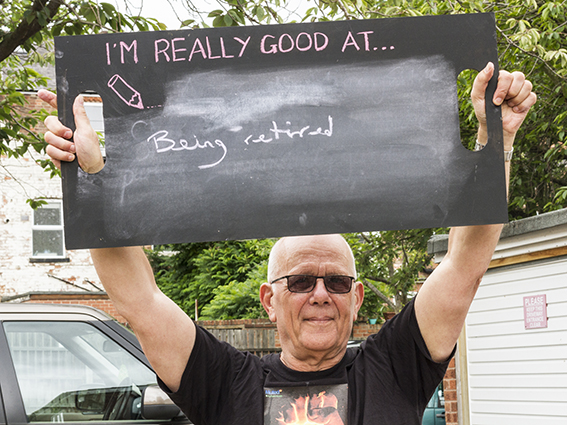 I'M REALLY GOOD AT...
Being retired
PLEASE